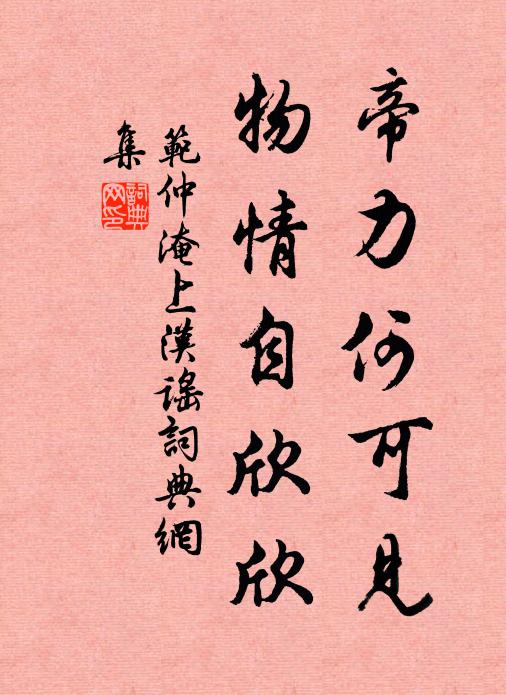 帝力何可見
物情自欣欣
範仲淹上漢謠詞典網
集
詞典
网印